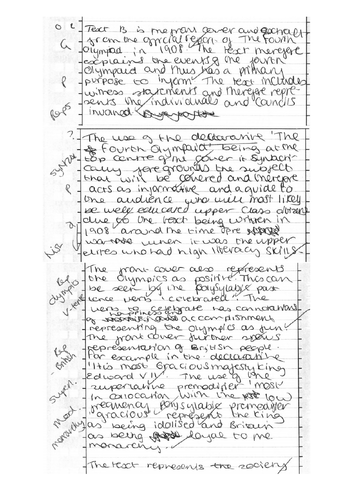 Text B is the front cover and
from the official report of The fourth
Olympiad in 1908. The text therefore
explains the events of the fourth
Olympiad and thus has a primary
purpose to inform. The text includes
witness statements and therefore repre-
sents the individuals and councils
involved
The use of the declarative 'The
fourth Olympiad' being at the
top centre of the cover it syntact-
ically foregrounds the subject
that will be covered and therefore
acts as informative and a guide to
the audience who will most likely
be well educated upper class
due to the text being written in
1908 around the time pre
war when it was the upper
elites who had high literacy skills
The front cover also represents
the Olympics as positive. This can
be seen by the polysyllabic past
tense verb 'celebrated'. The
verb to celebrate has connotations
of happiness and accomplishment
representing the Olympics as fun.
The front cover further shows
representation of British people.
For example in the declarative
'His most Gracious majesty king
Edward VII'. The use of the
superlative premodifier 'most'
in collocation with the low
frequency polysyllabic premodifier
'gracious' represent the king
as being idolised and Britain
as being loyal to the
monarchy.
The text represents the society